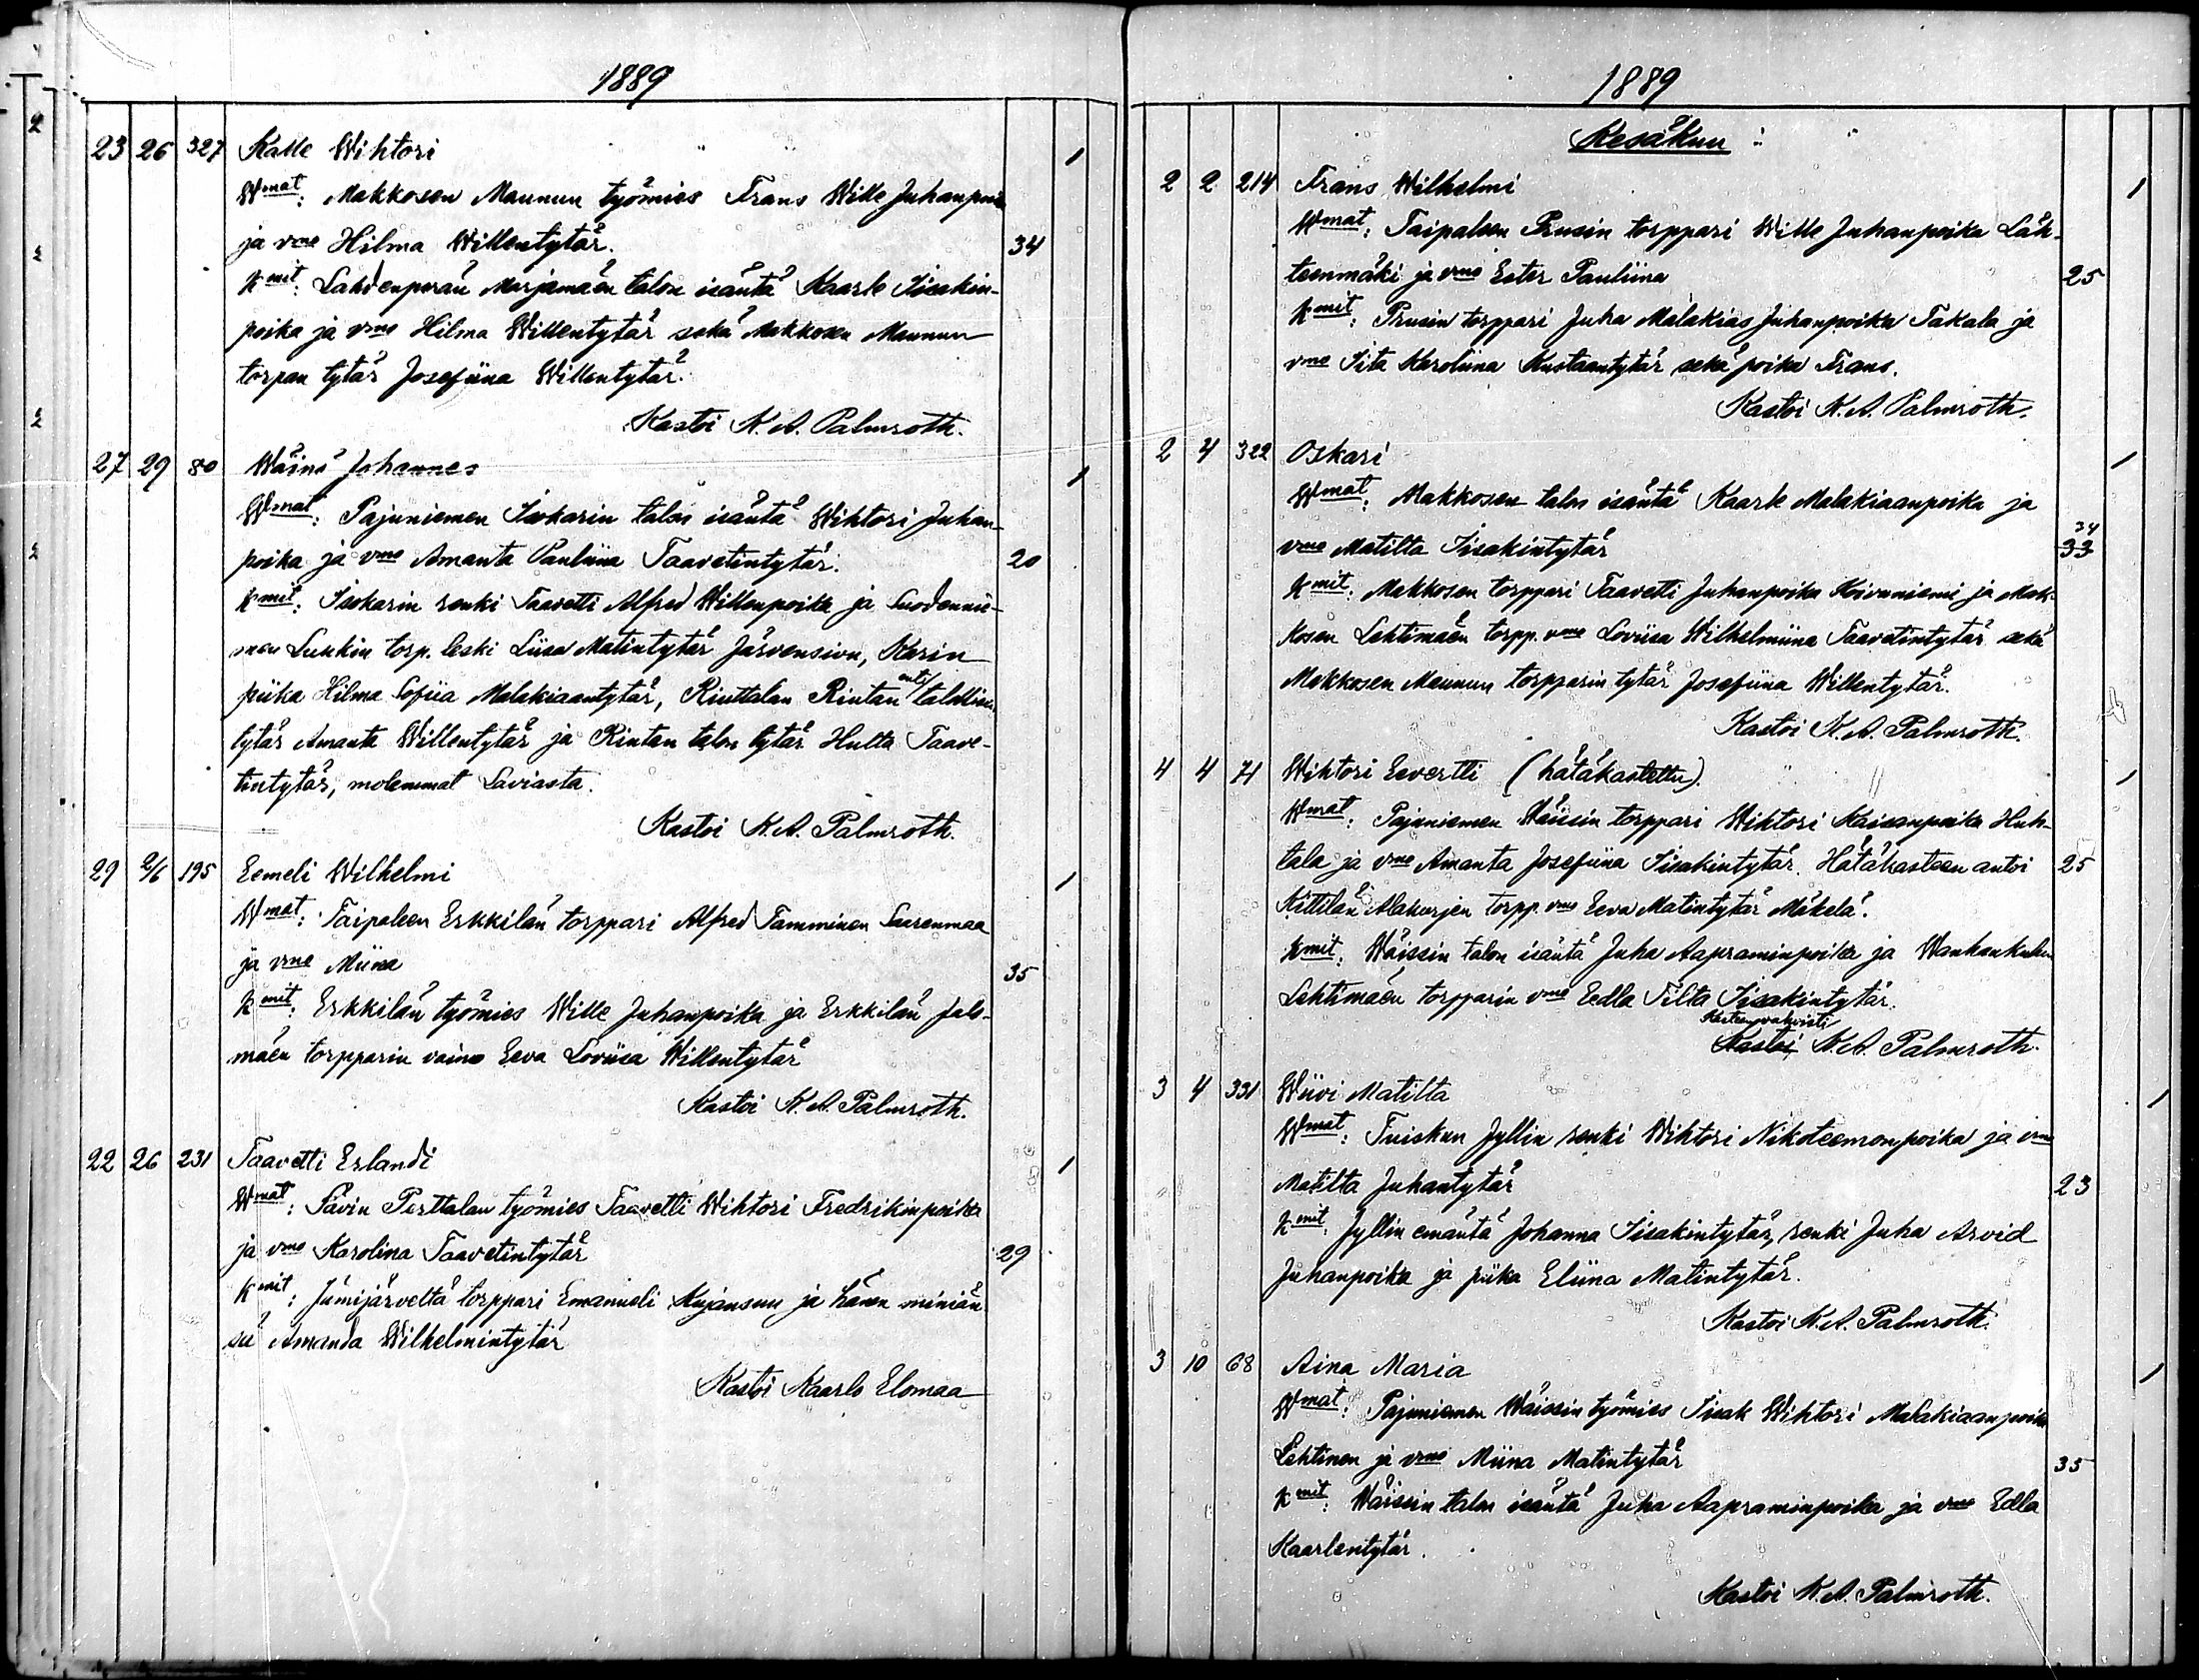 1889
23 26 327 Kalle Wihtori 1
Wmat: Makkosen Maunun työmies Frans Wille Juhanpoika
ja vmo Hilma Willentytär. 34
Kmit: Lahdenperän Marjamäen talon isäntä Kaarle Iisakin-
poika ja vmo Hilma Willentytär sekä Makkosen Maunun
torpan tytär Josefiina Willentytär.
Kastoi K. A. Palmroth.
27 29 80 Wäinö Johannes 1
Wmat: Pajuniemen Isokarin talon isäntä Wihtori Juhan-
poika ja vmo Amanta Pauliina Taavetintytär. 20
Kmit: Isokarin renki Taavetti Alfred Willenpoika ja Suodennie-
men Lunkin torp. leski Liisa Matintytär Järvensivu, Karin
piika Hilma Sofiia Malakiaantytär, Riuttalan Rintan talollisen
tytär Amanta Willentytär ja Rintan talon tytär Hulta Taave-
tintytär, molemmat Laviasta.
Kastoi K. A. Palmroth.
29 2/6 195 Eemeli Wilhelmi 1
Wmat: Taipaleen Erkkilän torppari Alfred Tamminen Saarenmaa
ja vmo Miina 35
Kmit: Erkkilän työmies Wille Juhanpoika ja Erkkilän Jals-
mäen torpparin vaimo Eeva Loviisa Willentytär
Kastoi K. A. Palmroth.
22 26 231 Taavetti Erlandi 1
Wmat: Sävin Perttalan työmies Taavetti Wihtori Fredrikinpoika
ja vmo Karolina Taavetintytär 29
Kmit: Jämijärveltä torppari Emanueli Kujansuu ja hänen miniän
sä Amanda Wilhelmintytär
Kastoi Kaarlo Elomaa
1889
Kesäkuu:
2 2 214 Frans Wilhelmi 1
Wmat: Taipaleen Prusin torppari Wille Juhanpoika Läh-
teenmäki ja vmo Ester Pauliina 25
Kmit: Prusin torppari Juha Malakias Juhanpoika Takala ja
vmo Iita Karoliina Kustaantytär sekä poika Frans.
Kastoi K. A. Palmroth.
2 4 322 Oskari 1
Wmat: Makkosen talon isäntä Kaarle Malakiaanpoika ja
vmo Matilta Iisakintytär 34 33
Kmit. Makkosen torppari Taavetti Juhanpoika Koivuniemi ja Mak-
kosen Lehtimäen torpp. vmo Loviisa Wilhelmiina Taavetintytär sekä
Makkosen Maunun torpparin tytär Josefiina Willentytär.
Kastoi K. A. Palmroth.
4 4 71 Wihtori Eevertti (hätäkastettu). 1
Wmat: Pajuniemen Wäissin torppari Wihtori Kaisanpoika Huh-
tala ja vmo Amanta Josefiina Iisakintytär. Hätäkasteen antoi 25
Kittilän Alakarjen torpp. vmo Eeva Matintytär Mäkelä.
Kmit: Wäissin talon isäntä Juha Aapraminpoika ja Wanhankulun
Lehtimäen torpparin vmo Eedla Tilta Iisakintytär.
Kasteen vahvisti
Kastoi K. A. Palmroth.
3 4 331 Wiivi Matilta 1
Wmat: Tuiskun Jyllin renki Wihtori Nikoteemonpoika ja vmo
Matilta Juhantytär 23
Kmit: Jyllin emäntä Johanna Iisakintytär, renki Juha Arvid
Juhanpoika ja piika Eliina Matintytär.
Kastoi K. A. Palmroth.
3 10 68 Aina Maria 1
Wmat: Pajuniemen Wäissin työmies Iisak Wihtori Malakiaanpoika
Lehtinen ja vmo Miina Matintytär 35
Kmit: Wäissin talon isäntä Juha Aapraminpoika ja vmo Edla
Kaarlentytär.
Kastoi K. A. Palmroth.